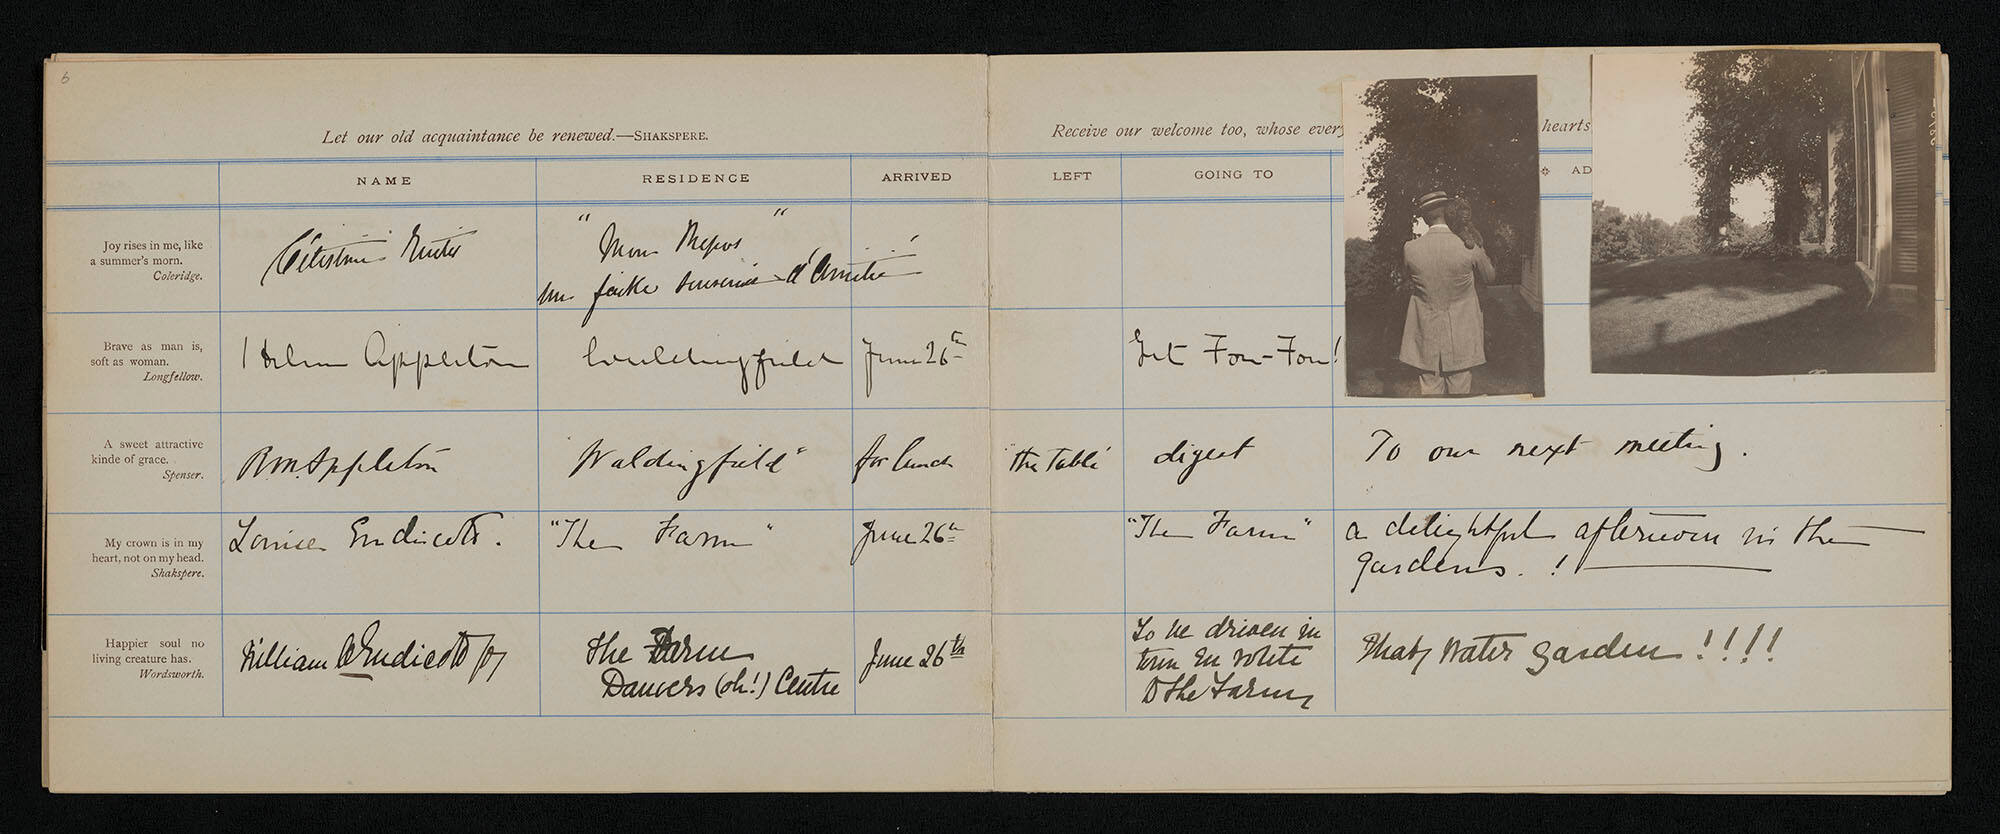 6
Let our old acquaintance be renewed.—SHAKSPERE.
Receive our welcome too, whose every
hearts
NAME RESIDENCE ARRIVED LEFT GOING TO AD
Joy rises in me, like
a summer's morn.
Coleridge.
"Mon Repos"
d'Amitié
Brave as man is,
soft as woman.
Longfellow.
Helen Appleton Waldingfield June 26th Get Fou-Fou!
A sweet attractive
kinde of grace.
Spenser.
R. M. Appleton "Waldingfield" for lunch "the Table" digest To our next meeting.
My crown is in my
heart, not on my head.
Shakspere.
Louise Endicott. "The Farm" June 26th "The Farm" a delightful afternoon in the
gardens.!
Happier soul no
living creature has.
Wordsworth.
William C Endicott Jr The Farm
Danvers (oh!) Centre
June 26th
To be driven in
town en route
to the Farm
That Water garden!!!!